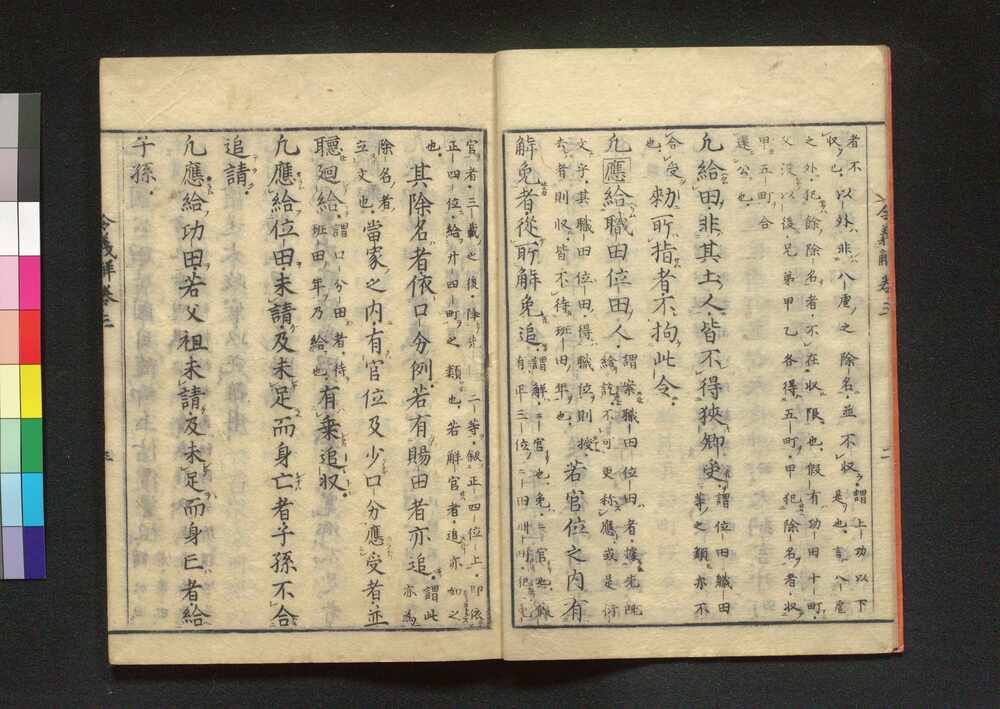 者不
収。以外非八虐之除名。並不収。謂。上功以下
是也。言八虐
之外。犯餘除名者。不在収限也。假有功田十町。
父没以後。兄弟甲乙各得五町。甲犯除名者。収
甲五町合
還公也。
凡給田。非其土人。皆不得狭郷受。謂。位田職田
等之類。亦不
合受
也。勅所指者。不拘此令。
凡應給職田位田人。謂。案職田位田者。據先既
給訖。不可更称應。或是衍
文乎。其職田位田。得職位則授。
者則収。皆不待班田年也。若官位之内有
解免者。從所解免追。謂。解
官者。三載之後。降先二等叙。正四位上。即依
正四位。給廿四町之類也。若解官者。追亦如之
也。
其除名者。依口分例。若有賜田者亦追。謂。此
亦為
除名者
立文也。當家之内。有官位及少口分應受者。並
聽廻給。謂。口分田者。待
班田年。乃給也。有乗追収。
凡應給位田。未請。及未足而身亡者。子孫不合
追請。
凡應給功田。若父祖未請。及未足而身亡者。給
子孫。
令義解卷三
二
令義解卷三
三